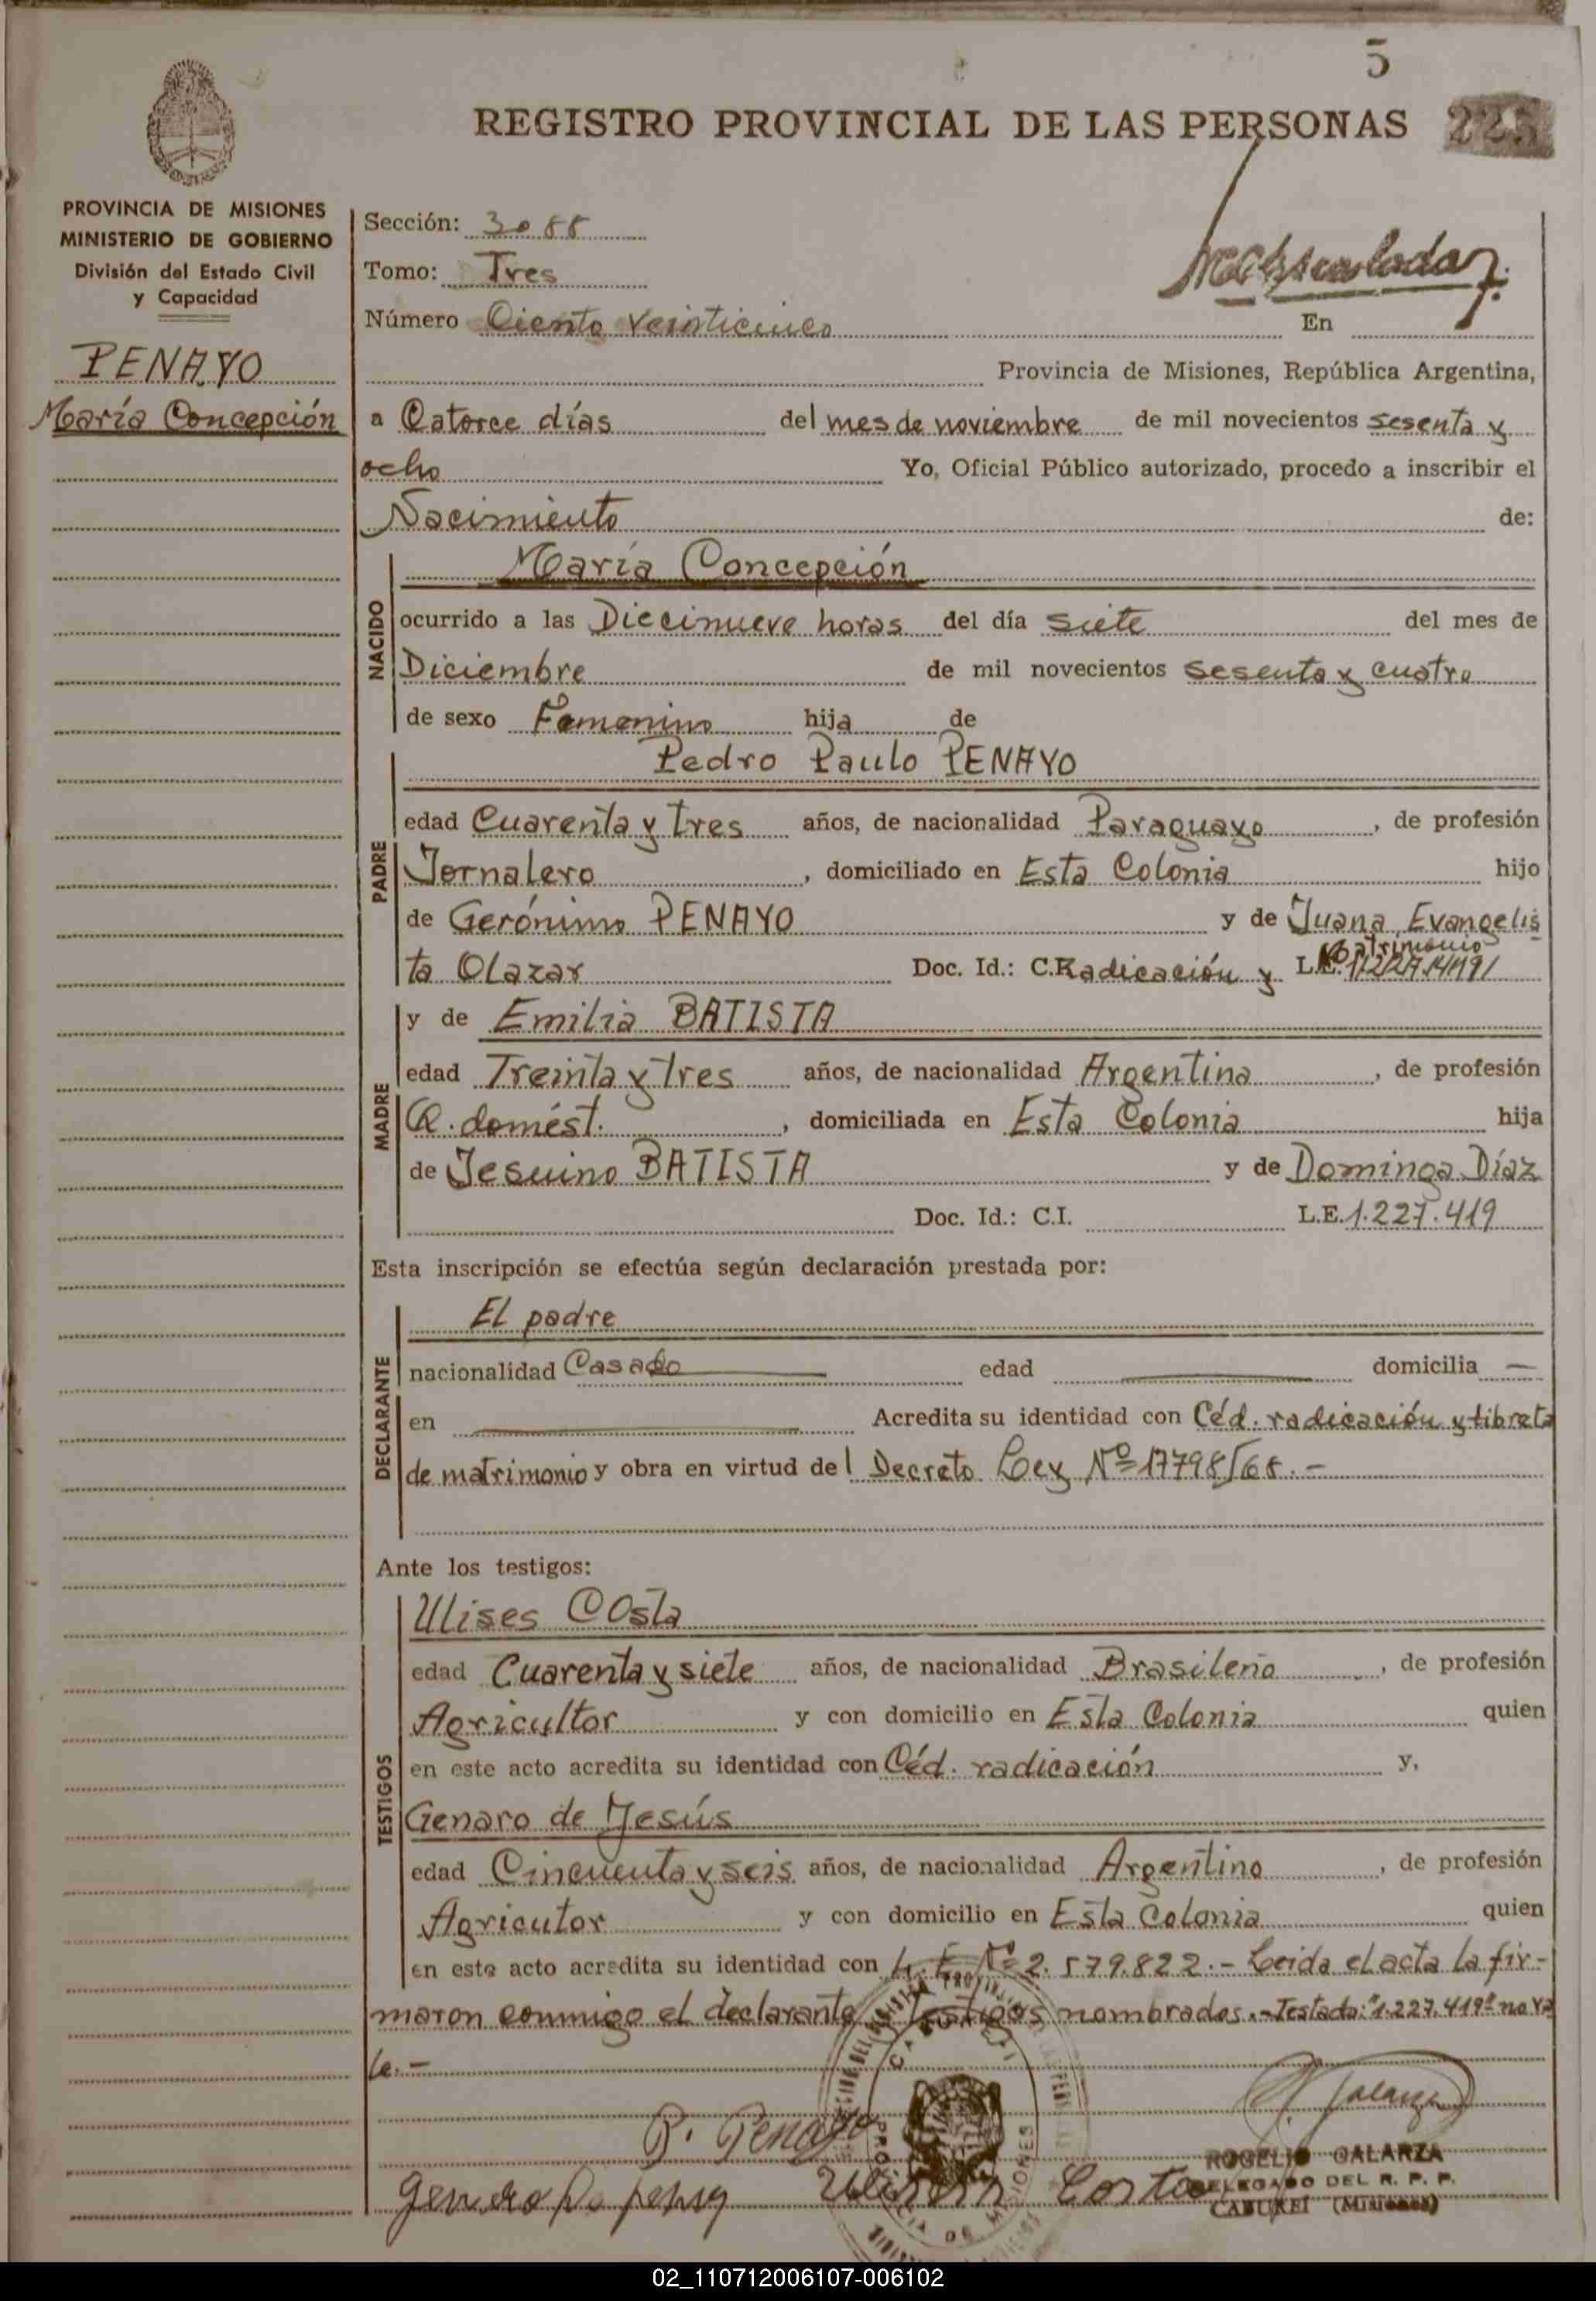 5
REGISTRO PROVINCIAL DE LAS PERSONAS
PROVINCIA DE MISIONES
MINISTERIO DE GOBIERNO
División del Estado Civil
y Capacidad
PENAYO
María Concepción
Sección: 3088
Tomo: Tres
Número Ciento veinticinco En
Provincia de Misiones, República Argentina,
a Catorce días del mes de noviembre de mil novecientos sesenta y
ocho Yo, Oficial Público autorizado, procedo a inscribir el
Nacimiento de:
NACIDO
María Concepción
ocurrido a las Diecinueve horas del día siete del mes de
Diciembre de mil novecientos sesenta y cuatro
de sexo Femenino hija de
PADRE
Pedro Paulo PENAYO
edad Cuarenta y tres años, de nacionalidad Paraguayo, de profesión
Jornalero, domiciliado en Esta Colonia hijo
de Gerónimo PENAYO y de Juana Evangelis
ta Olazar Doc. Id.: C.Radicación y L.E. Matrimonio
MADRE
y de Emilia BATISTA
edad Treinta y tres años, de nacionalidad Argentina, de profesión
Q. domést., domiciliada en Esta Colonia hija
de Jesuino BATISTA y de Dominga Díaz
Doc. Id.: C.I. L.E. 1.227.419
Esta inscripción se efectúa según declaración prestada por:
DECLARANTE
El padre
nacionalidad Casado edad domicilia —
en Acredita su identidad con Céd. radicación y libreta
de matrimonio y obra en virtud del Decreto Ley Nº 17798/68.-
Ante los testigos:
TESTIGOS
Ulises Costa
edad Cuarenta y siete años, de nacionalidad Brasileña, de profesión
Agricultor y con domicilio en Esta Colonia quien
en este acto acredita su identidad con Céd. radicación y,
Genaro de Jesús
edad Cincuenta y seis años, de nacionalidad Argentino, de profesión
Agricutor y con domicilio en Esta Colonia quien
en este acto acredita su identidad con L.E Nº 2.579.822.- Leida el acta la fir-
maron conmigo el declarante y testigos nombrados.- Testado: "1.227.419" no va
le.-
P. Penayo
ROGELIO GALARZA
DELEGADO DEL R. P. P.
CABUREI (Misiones)
02_110712006107-006102